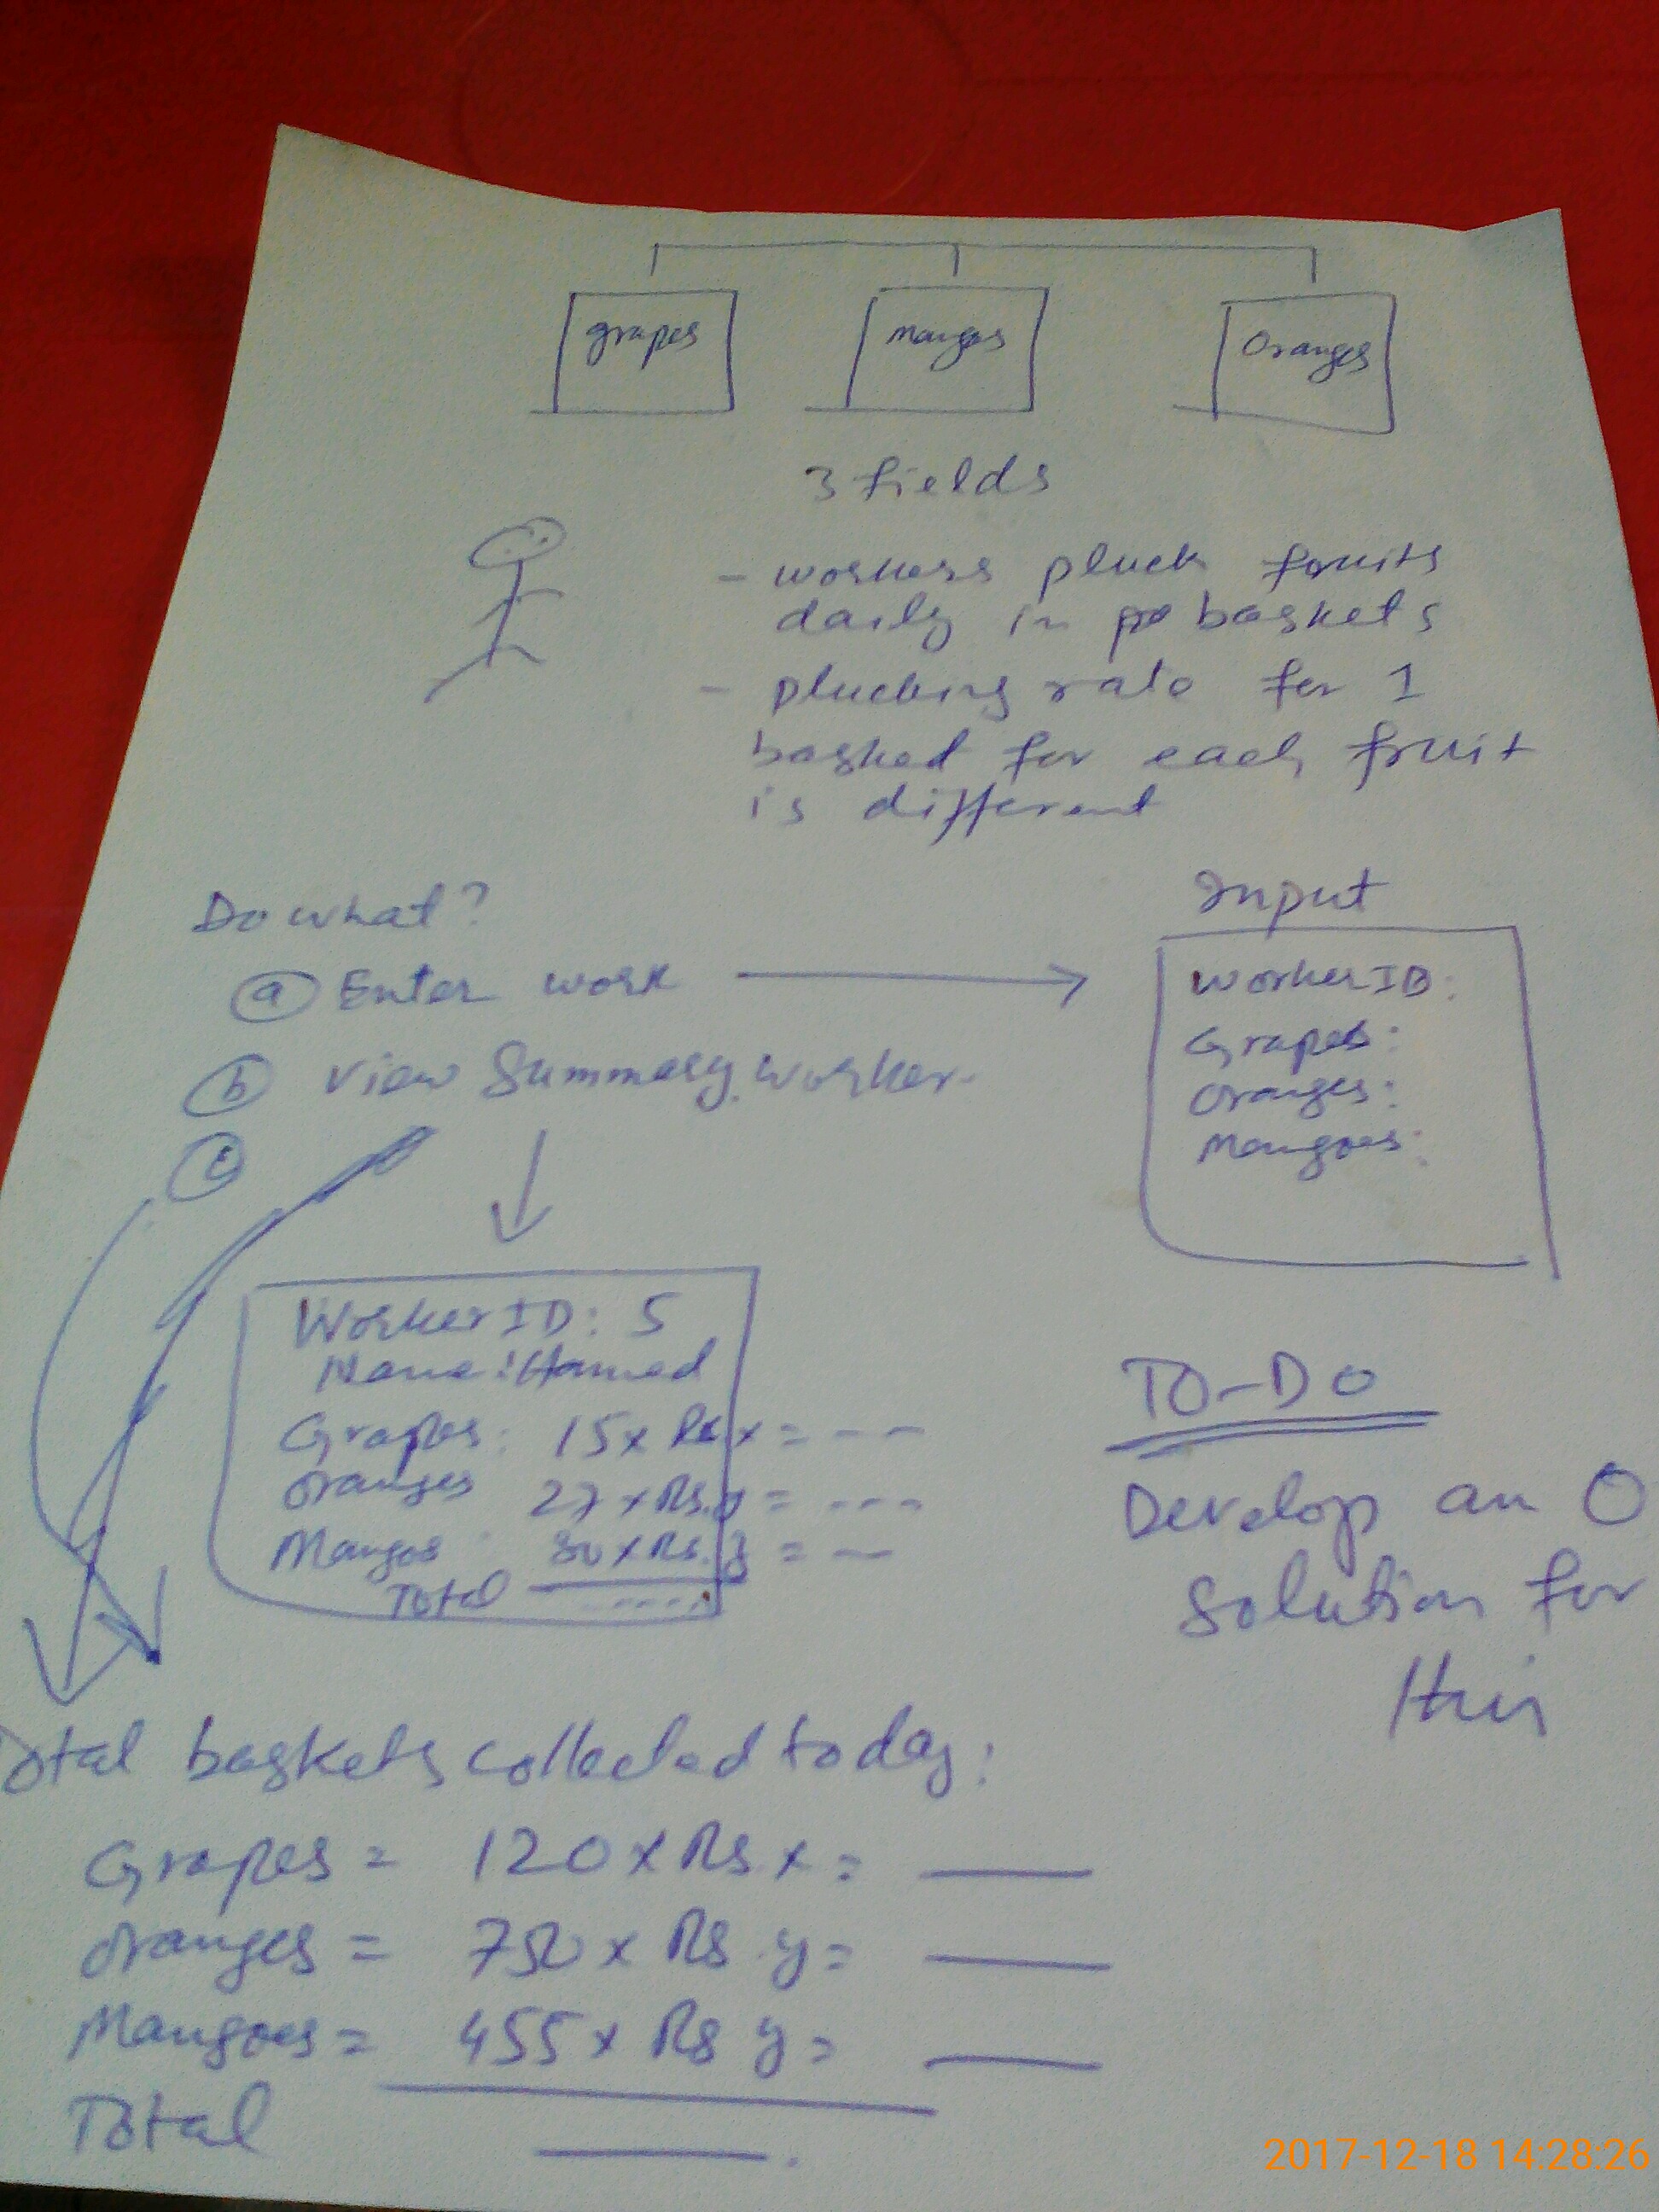 grapes mangos Oranges
3 fields
- workers pluck fruits
daily in baskets
- plucking rate for 1
basked for each fruit
is different
Do what?
a Enter work
b view Summary worker
c
Input
Worker ID:
Grapes:
Oranges:
Mangoes:
Worker ID: 5
Name: Hamed
Grapes: 15 x Rs x = ---
Oranges 27 x Rs. y = ---
Mangos 80 x Rs. z = --
Total .....
TO-DO
Develop an O
Solution for
this
Total baskets collected today:
Grapes = 120 x Rs x =
Oranges = 750 x Rs y =
Mangoes = 455 x Rs y =
Total
2017-12-18 14:28:26